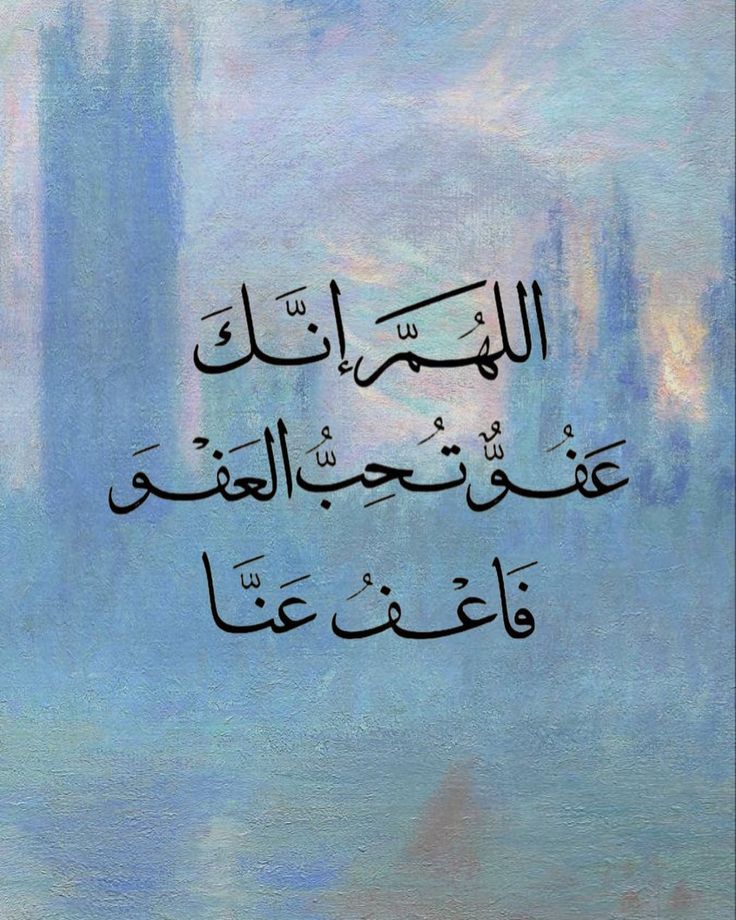 اللهُمَّ إنَّكَ
عَفُوٌّ تُحِبُّ العَفْوَ
فَاعْفُ عَنَّا